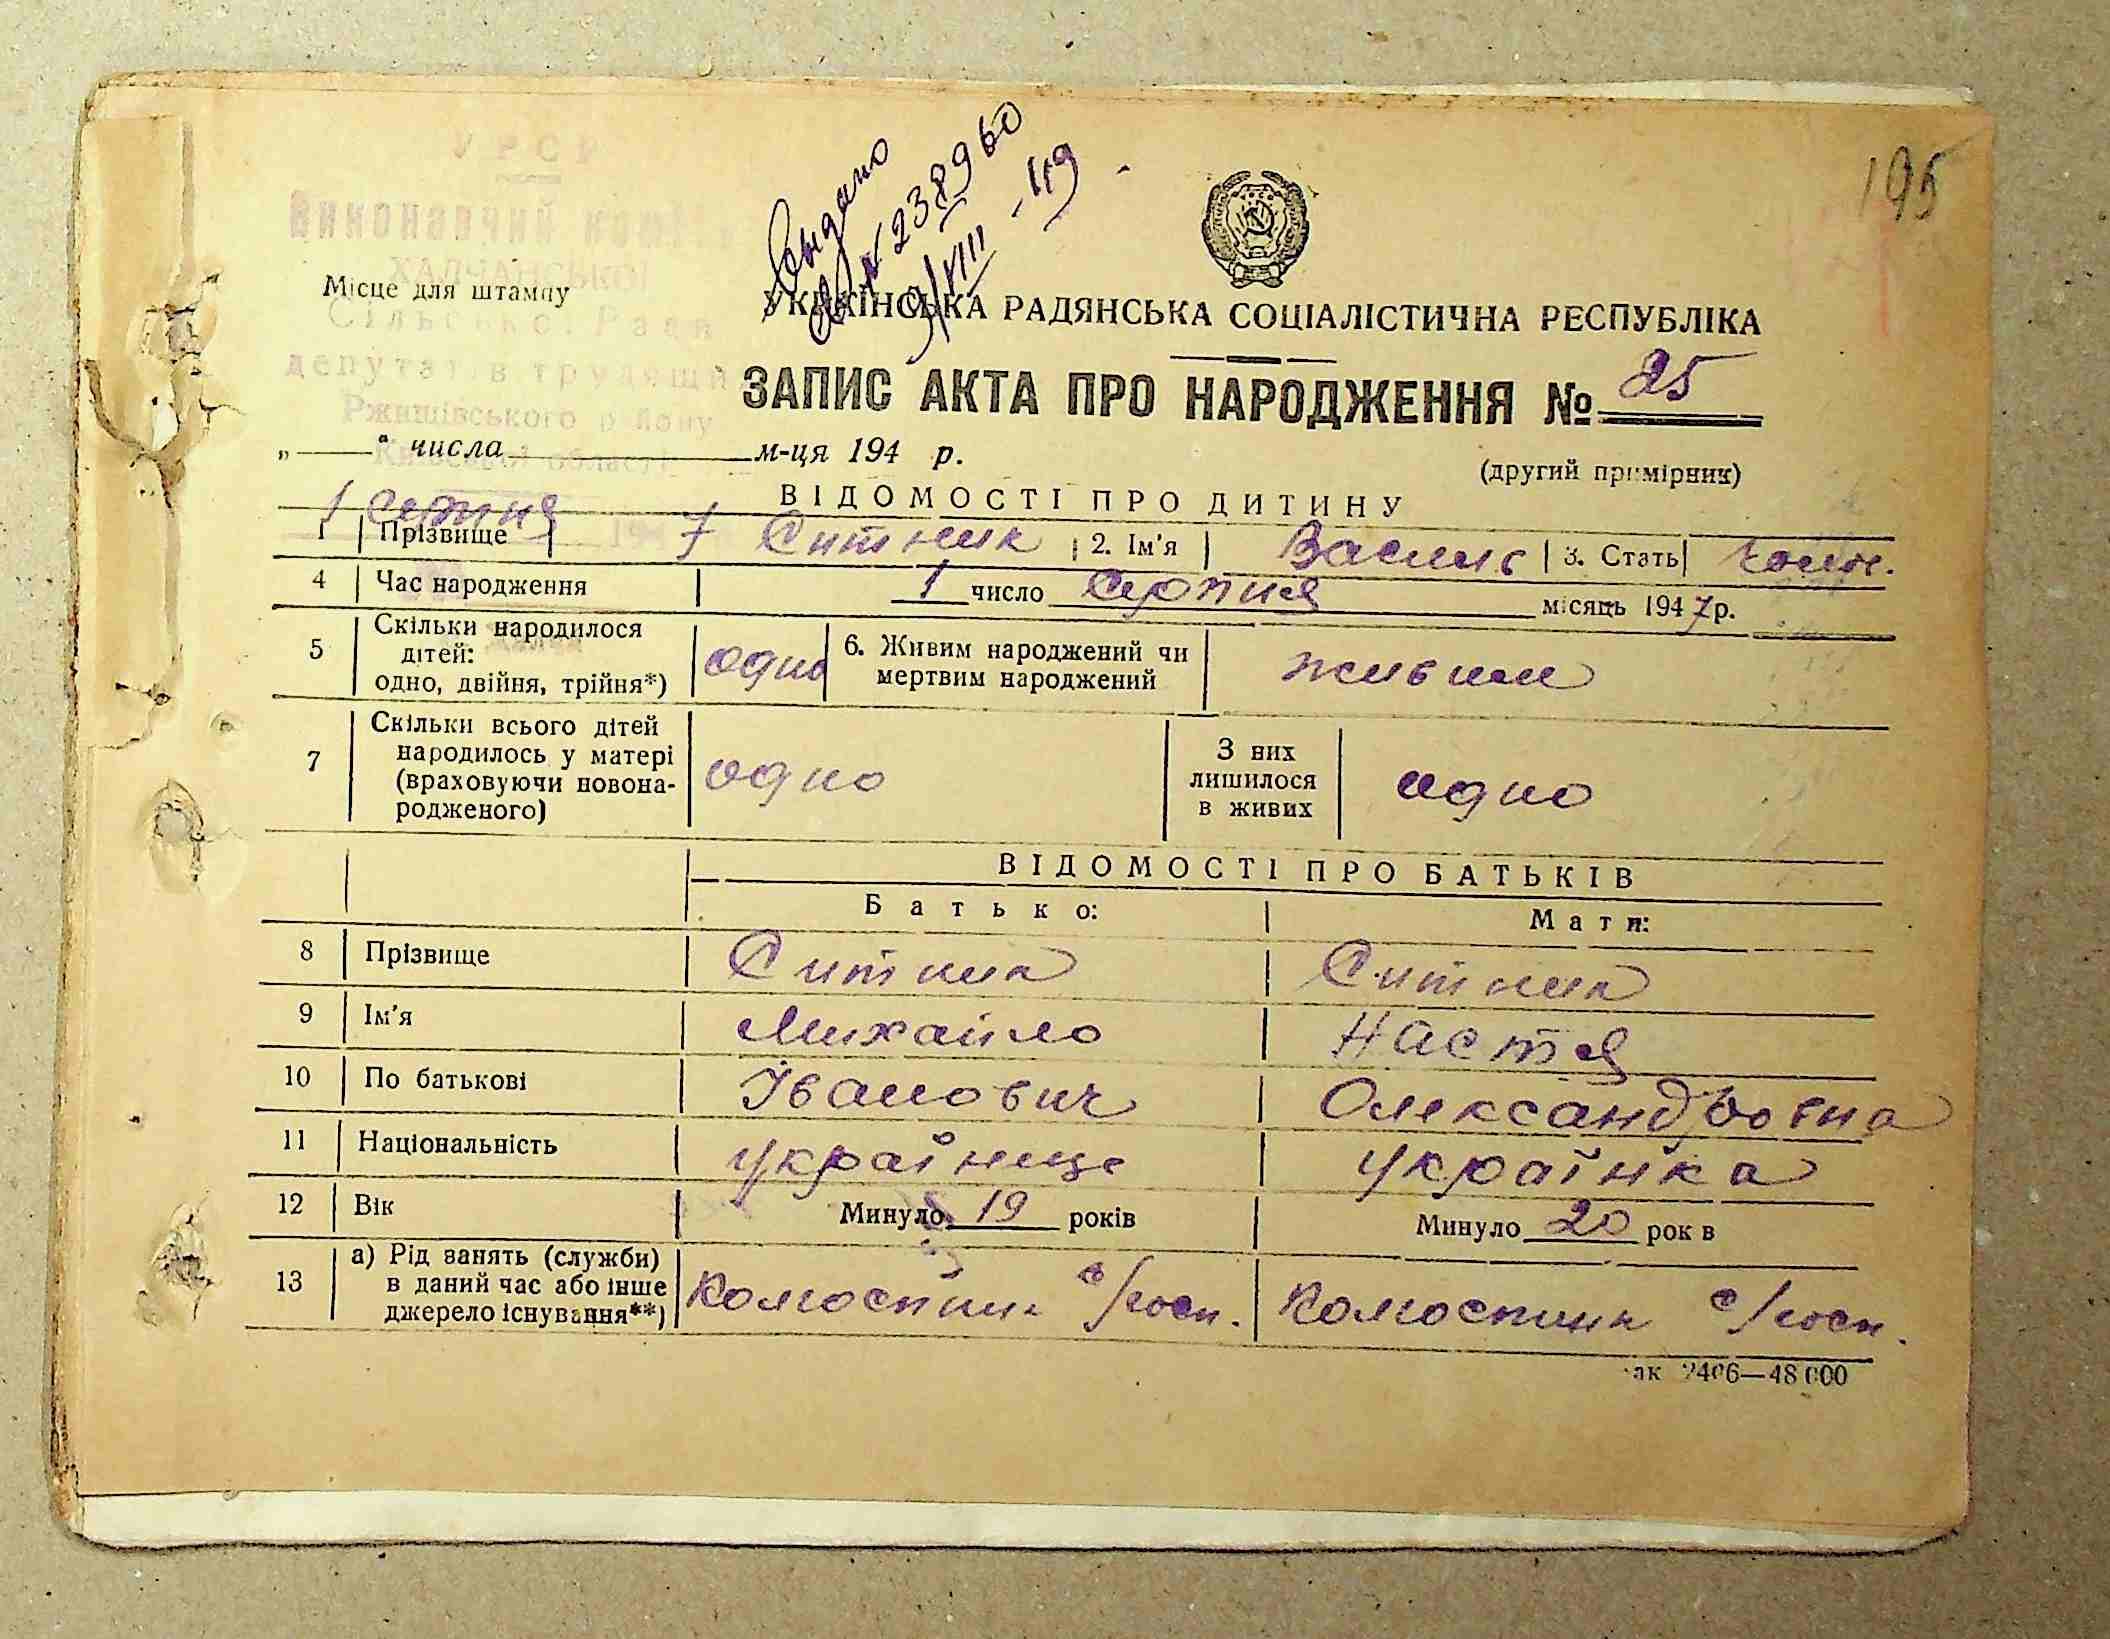 195
УРСР
Виконавчий
ХАЛЧАНСЬКОЇ
Місце для штампу
Сільсько. Ради
депутатів трудящи
Ржищівського району
Київської області
Видано
№ 238960
9/VIII - 49
УКРАЇНСЬКА РАДЯНСЬКА СОЦІАЛІСТИЧНА РЕСПУБЛІКА
ЗАПИС АКТА ПРО НАРОДЖЕННЯ № 25
„ “ числа м-ця 194 р.
(другий примірник)
1 серпня 194 7
ВІДОМОСТІ ПРО ДИТИНУ
1 Прізвище Ситник 2. Ім'я Василь 3. Стать чолов.
4 Час народження 1 число серпня місяць 1947р.
5 Скільки народилося дітей: одно, двійня, трійня*) одно 6. Живим народжений чи мертвим народжений живим
7 Скільки всього дітей народилось у матері (враховуючи новонародженого) одно З них лишилося в живих одно
ВІДОМОСТІ ПРО БАТЬКІВ
Батько: Мати:
8 Прізвище Ситник Ситник
9 Ім'я Михайло Настя
10 По батькові Іванович Олександровна
11 Національність українець українка
12 Вік Минуло 19 років Минуло 20 рок в
13 а) Рід занять (служби) в даний час або інше джерело існування**) Колгоспник с/госп. Колгоспник с/госп.
ак 2406—48 000